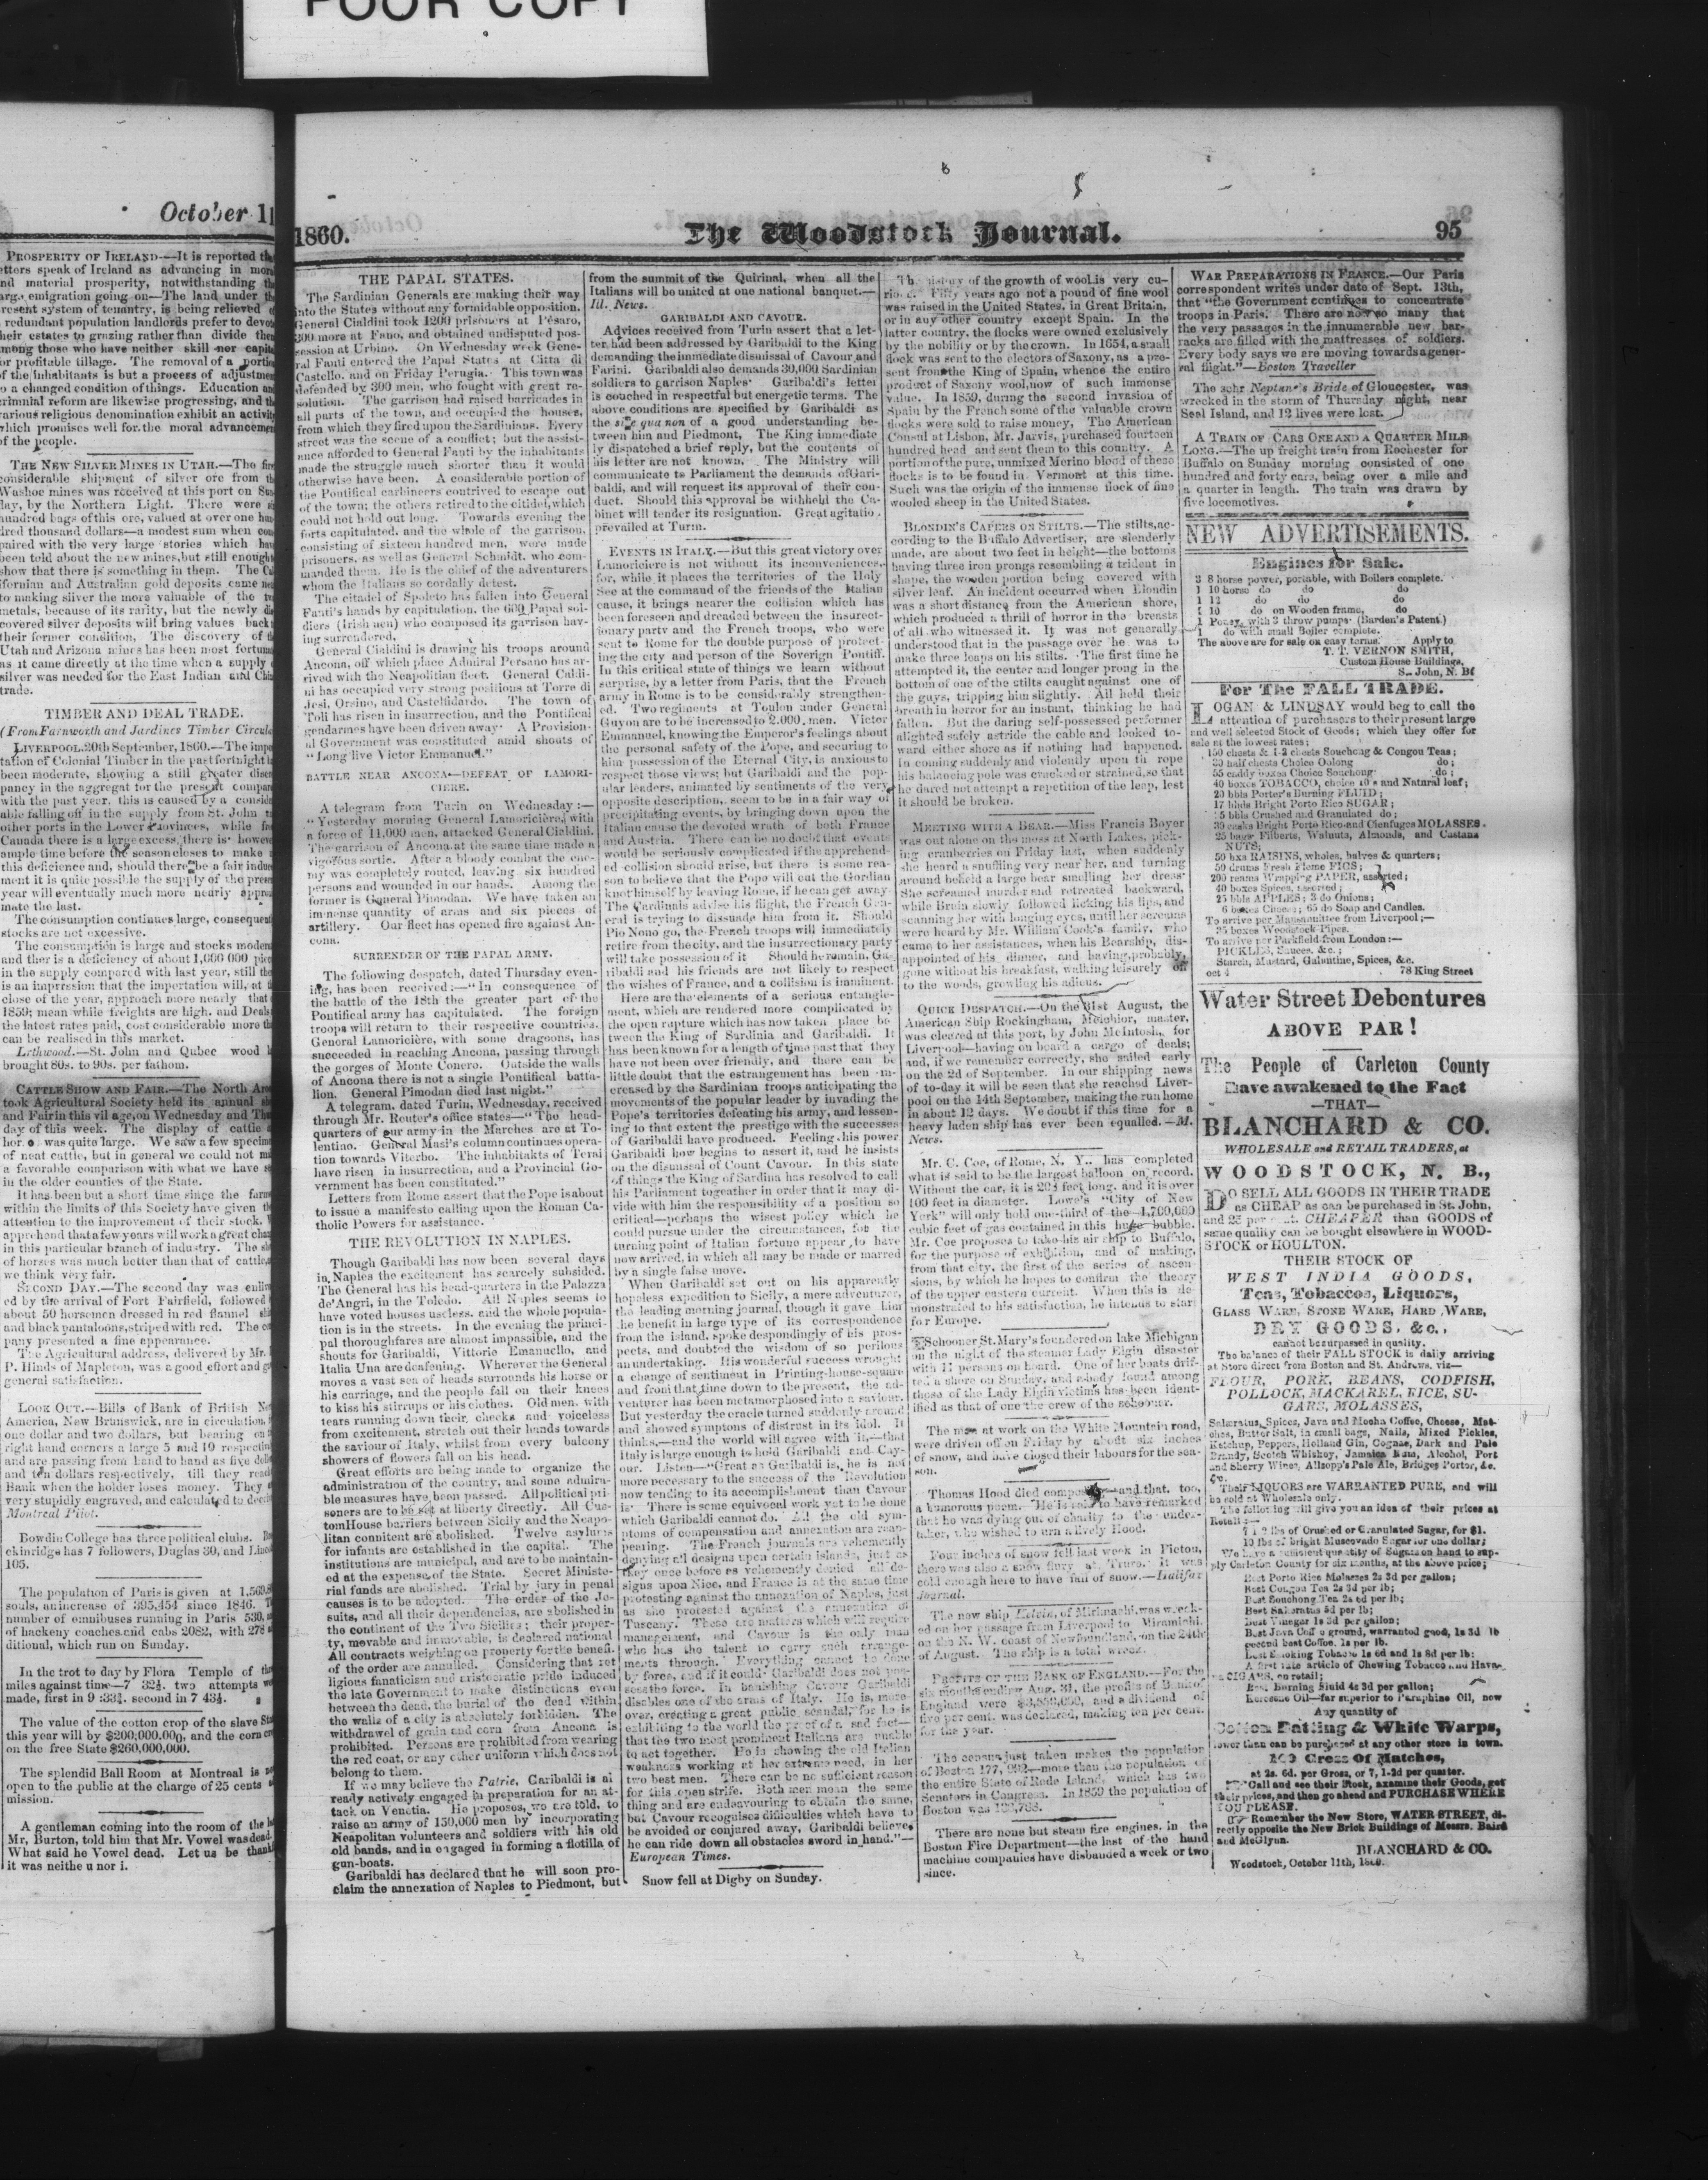 POOR COPY
October 11
PROSPERITY OF IRELAND.—It is reported
letters speak of Ireland as advancing in
and material prosperity, notwithstanding
emigration going on—The land under
present system of tenantry, is being relieved
redundant population landlords prefer to
their estates to grazing rather than divide
among those who have neither skill nor
for profitable tillage. The removal of a
of the inhabitants is but a process of
to a changed condition of things. Education
reform are likewise progressing, and
various religious denomination exhibit an
which promises well for the moral
of the people.
THE NEW SILVER MINES IN UTAH.—The
considerable shipment of silver ore from
Washoe mines was received at this port on
by the Northern Light. There were
hundred bags of this ore, valued at over one
dred thousand dollars—a modest sum when
paired with the very large stories which
been told about the new mines, but still
show that there is something in them. The
ifornian and Australian gold deposits came
to making silver the more valuable of the
metals, because of its rarity, but the newly
covered silver deposits will bring values
their former condition. The discovery of
Utah and Arizona mines has been most
as it came directly at the time when a supply
silver was needed for the East Indian and
trade.
TIMBER AND DEAL TRADE.
(From Farnworth and Jardines Timber
LIVERPOOL 20th September, 1860.—The
tation of Colonial Timber in the past fortnight
been moderate, showing a still greater
pancy in the aggregat for the present
with the past year. this is caused by a
able falling off in the supply from St. John
other ports in the Lower Provinces, while
Canada there is a large excess, there is
ample time before the season closes to make
this deficience and, should there be a fair
ment it is quite possible the supply of the
year will eventually much more nearly
mate the last.
The consumption continues large,
stocks are not excessive.
The consumption is large and stocks
and ther is a deficiency of about 1,600 000
in the supply compared with last year, still
is an impression that the importation will,
close of the year, approach more nearly
1859; mean while freights are high, and
the latest rates paid, cost considerable more
can be realised in this market.
Lathwood.—St. John and Qubec wood
brought 80s. to 90s. per fathom.
CATTLE SHOW AND FAIR.—The North
took Agricultural Society held its annual
and Fair in this vil age, on Wednesday and
day of this week. The display of cattle
was quite large. We saw a few
of neat cattle, but in general we could not
a favorable comparison with what we have
in the older counties of the State.
It has been but a short time since the
within the limits of this Society have given
attention to the improvement of their stock.
apprehend that a few years will work a great
in this particular branch of industry. The
of horses was much better than that of
we think very fair.
SECOND DAY.—The second day was
ed by the arrival of Fort Fairfield, followed
about 50 horsemen dressed in red flannel
and black pantaloons, striped with red. The
pany presented a fine appearance.
The Agricultural address, delivered by Mr.
P. Hinds of Mapleton, was a good effort and
general satisfaction.
LOOK OUT.—Bills of Bank of British
America, New Brunswick, are in circulation,
one dollar and two dollars, but bearing
right hand corners a large 5 and 10
and are passing from hand to hand as five
and ten dollars respectively, till they
Bank when the holder loses money. They
very stupidly engraved, and calculated to
Montreal Pilot.
Bowdin College has three political clubs.
ckinridge has 7 followers, Duglas 30, and
105.
The population of Paris is given at
souls, an increase of 395,454 since 1846.
number of omnibuses running in Paris
of hackeny coaches and cabs 2082, with
ditional, which run on Sunday.
In the trot to day by Flora Temple of
miles against time—7 32½. two attempts
made, first in 9 :33¾. second in 7 43½.
The value of the cotton crop of the slave
this year will by $200,000,000, and the corn
on the free State $260,000,000.
The splendid Ball Room at Montreal is
open to the public at the charge of 25 cents
mission.
A gentleman coming into the room of the
Mr, Burton, told him that Mr. Vowel was dead.
What said he Vowel dead. Let us be
it was neithe u nor i.
1860.
The Woodstock Journal.
95
THE PAPAL STATES.
The Sardinian Generals are making their way
into the States without any formidable opposition.
General Cialdini took 1200 prisoners at Pesaro,
300 more at Fano, and obtained undisputed pos-
session at Urbino. On Wednesday week Gene-
ral Fanti entered the Papal States at Citta di
Castello, and on Friday Perugia. This town was
defended by 300 men, who fought with great re-
solution. The garrison had raised barricades in
all parts of the town, and occupied the houses,
from which they fired upon the Sardinians. Every
street was the scene of a conflict; but the assist-
ance afforded to General Fanti by the inhabitants
made the struggle much shorter than it would
otherwise have been. A considerable portion of
the Pontifical carbineers contrived to escape out
of the town; the others retired to the citidel, which
could not hold out long. Towards evening the
forts capitulated, and the whole of the garrison,
consisting of sixteen hundred men, were made
prisoners, as well as General Schmidt, who com-
manded them. He is the chief of the adventurers
whom the Italians so cordally detest.
The citadel of Spoleto has fallen into General
Fanti's hands by capitulation, the 600 Papal sol-
diers (Irish men) who composed its garrison hav-
ing surrendered.
General Cialdini is drawing his troops around
Ancona, off which place Admiral Persano has ar-
rived with the Neapolitian fleet. General Caldi-
ni has occupied very strong positions at Torre di
Jesi, Orsino, and Castelfidardo. The town of
Toli has risen in insurrection, and the Pontifical
gendarmes have been driven away. A Provision-
al Government was constituted amid shouts of
"Long live Victor Emmanuel."
BATTLE NEAR ANCONA—DEFEAT OF LAMORI-
CIERE.
A telegram from Turin on Wednesday :—
"Yesterday morning General Lamoriciere, with
a force of 11,000 men, attacked General Cialdini.
The garrison of Ancona at the same time made a
vigorous sortie. After a bloody combat the ene-
my was completely routed, leaving six hundred
persons and wounded in our hands. Among the
former is General Pimodan. We have taken an
immense quantity of arms and six pieces of
artillery. Our fleet has opened fire against An-
cona.
SURRENDER OF THE PAPAL ARMY.
The following despatch, dated Thursday even-
ing, has been received :—"In consequence of
the battle of the 18th the greater part of the
Pontifical army has capitulated. The forsign
troops will return to their respective countries.
General Lamoriciere, with some dragoons, has
succeeded in reaching Ancona, passing through
the gorges of Monte Conero. Outside the walls
of Ancona there is not a single Pontifical batta-
lion. General Pimodan died last night."
A telegram, dated Turin, Wednesday, received
through Mr. Reuter's office states—"The head-
quarters of our army in the Marches are at To-
lentino. General Masi's column continues opera-
tion towards Viterbo. The inhabitakts of Terni
have risen in insurrection, and a Provincial Go-
vernment has been constituted."
Letters from Rome assert that the Pope is about
to issue a manifesto calling upon the Roman Ca-
tholic Powers for assistance.
THE REVOLUTION IN NAPLES.
Though Garibaldi has now been several days
in Naples the excitement has scarcely subsided.
The General has his head-quarters in the Palazza
de'Angri, in the Toledo. All Naples seems to
have voted houses useless, and the whole popula-
tion is in the streets. In the evening the princi-
pal thoroughfares are almost impassible, and the
shouts for Garibaldi, Vittorio Emanuello, and
Italia Una are deafening. Wherever the General
moves a vast sea of heads surrounds his horse or
his carriage, and the people fall on their knees
to kiss his stirrups or his clothes. Old men, with
tears running down their cheeks and voiceless
from excitement, stretch out their hands towards
the saviour of Italy, whilst from every balcony
showers of flowers fall on his head.
Great efforts are being made to organize the
administration of the country, and some admira-
ble measures have been passed. All political pri-
soners are to be set at liberty directly. All Cus-
tomHouse barriers between Sicily and the Neapo-
litan continent are abolished. Twelve asylums
for infants are established in the capital. The
institutions are municipal, and are to be maintain-
ed at the expense of the State. Secret Ministe-
rial funds are abolished. Trial by jury in penal
causes is to be adopted. The order of the Je-
suits, and all their dependencies, are abolished in
the continent of the Two Sicilies; their proper-
ty, movable and immovable, is declared national
All contracts weighing on property for the benefit
of the order are annulled. Considering that re-
ligious fanaticism and aristocratic pride induced
the late Government to make distinctions even
between the dead, the burial of the dead within
the walls of a city is absolutely forbidden. The
withdrawel of grain and corn from Ancona is
prohibited. Persons are prohibited from wearing
the red coat, or any other uniform which does not
belong to them.
If we may believe the Patrie, Garibaldi is al
ready actively engaged in preparation for an at-
tack on Venetia. He proposes, we are told, to
raise an army of 150,000 men by incorporating
Neapolitan volunteers and soldiers with his old
old bands, and in engaged in forming a flotilla of
gun-boats.
Garibaldi has declared that he will soon pro-
claim the annexation of Naples to Piedmont, but
from the summit of the Quirinal, when all the
Italians will be united at one national banquet.—
Ill. News.
GARIBALDI AND CAVOUR.
Advices received from Turin assert that a let-
ter had been addressed by Garibaldi to the King
demanding the immediate dismissal of Cavour and
Farini. Garibaldi also demands 30,000 Sardinian
soldiers to garrison Naples. Garibaldi's letter
is couched in respectful but energetic terms. The
above conditions are specified by Garibaldi as
the sine qua non of a good understanding be-
tween him and Piedmont, The King immediate
ly dispatched a brief reply, but the contents of
his letter are not known. The Ministry will
communicate to Parliament the demands of Gari-
baldi, and will request its approval of their con-
duct. Should this approval be withheld the Ca-
binet will tender its resignation. Great agitatio.
prevailed at Turin.
EVENTS IN ITALY.—But this great victory over
Lamoriciere is not without its inconveniences,
for, while it places the territories of the Holy
See at the command of the friends of the Italian
cause, it brings nearer the collision which has
been foreseen and dreaded between the insurect-
ionary party and the French troops, who were
sent to Rome for the double purpose of protect-
ing the city and person of the Soverign Pontiff.
In this critical state of things we learn without
surprise, by a letter from Paris, that the French
army in Rome is to be considerably strengthen-
ed. Two regiments at Toulon under General
Guyon are to be increased to 2,000 men. Victor
Emmanuel, knowing the Emperor's feelings about
the personal safety of the Pope, and securing to
him possession of the Eternal City, is anxious to
respect those views; but Garibaldi and the pop-
ular leaders, animated by sentiments of the very
opposite description, seem to be in a fair way of
precipitating events, by bringing down upon the
Italian cause the devoted wrath of both France
and Austria. There can be no doubt that events
would be seriously complicated if the apprehend-
ed collision should arise, but there is some rea-
son to believe that the Pope will cut the Gordian
knot himself by leaving Rome, if he can get away
The Cardinals advise his flight, the French Gen-
eral is trying to dissuade him from it. Should
Pio Nono go, the French troops will immediately
retire from the city, and the insurrectionary party
will take possession of it Should he remain, Ga-
ribaldi and his friends are not likely to respect
the wishes of France, and a collision is imminent.
Here are the elements of a serious entangle-
ment, which are rendered more complicated by
the open rapture which has now taken place be-
tween the King of Sardinia and Garibaldi. It
has been known for a length of time past that they
have not been over friendly, and there can be
little doubt that the estrangement has been in-
creased by the Sardinian troops anticipating the
movements of the popular leader by invading the
Pope's territories defeating his army, and lessen-
ing to that extent the prestige with the successes
of Garibaldi have produced. Feeling his power
Garibaldi how begins to assert it, and he insists
on the dismssal of Count Cavour. In this state
of things the King of Sardina has resolved to call
his Parliament togeather in order that it may di-
vide with him the responsibility of a position so
critical—perhaps the wisest policy which he
could pursue under the circumstances, for the
turning point of Italian fortune appear to have
now arrived, in which all may be made or marred
by a single false move.
When Garibaldi set out on his apparently
hopeless expedition to Sicily, a mere adventurer,
the leading morning journal, though it gave him
the benefit in large type of its correspondence
from the island, spoke despondingly of his pros-
pects, and doubted the wisdom of so perilous
an undertaking. His wonderful success wrought
a change of sentiment in Printing-house-square
and from that time down to the present, the ad-
venturer has been metamorphosed into a saviour.
But yesterday the oracle turned suddenly around
and showed symptoms of distrust in its idol. It
thinks,—and the world will agree with it,—that
Italy is large enough to hold Garibaldi and Cav-
our. Listen—"Great as Garibaldi is, he is not
more necessary to the success of the Revolution
now tending to its accomplishment than Cavour
is. There is some equivocal work yet to be done
which Garibaldi cannot do. All the old sym-
ptoms of compensation and annexation are reap-
pearing. The French journals are vehemently
denying all designs upon certain islands, just as
they once before as vehemently denied all de-
signs upon Nice, and France is at the same time
protesting against the annexation of Naples, just
as she protested against the annexation of
Tuscany. These are matters which will require
management, and Cavour is the only man
who has the talent to carry such arrange-
ments through. Everything cannot be done
by force, and if it could Garibaldi does not pos-
sess the force. In banishing Cavour Garibaldi
disables one of the arms of Italy. He is, more-
over, creating a great public scandal, for he is
exhibiting to the world the proof of a sad fact—
that the two most prominent Italians are unable
to act together. He is showing the old Italian
weakness working at her extreme need, in her
two best men. There can be no sufficient reason
for this open strife. Both men mean the same
thing and are endeavouring to obtain the same,
but Cavour recognises difficulties which have to
be avoided or conjured away, Garibaldi believes
he can ride down all obstacles sword in hand."—
European Times.
Snow fell at Digby on Sunday.
of the growth of wool is very cu-
Fifty years ago not a pound of fine wool
was raised in the United States, in Great Britain,
or in any other country except Spain. In the
latter country, the flocks were owned exclusively
by the nobility or by the crown. In 1654, a small
flock was sent to the electors of Saxony, as a pre-
sent from the King of Spain, whence the entire
product of Saxony wool, now of such immense
value. In 1859, during the second invasion of
Spain by the French some of the valuable crown
flocks were sold to raise money, The American
Consul at Lisbon, Mr. Jarvis, purchased fourteen
hundred head and sent them to this country. A
portion of the pure, unmixed Merino blood of these
flocks is to be found in Vermont at this time.
Such was the origin of the immense flock of fine
wooled sheep in the United States.
BLONDIN'S CAPERS ON STILTS.—The stilts, ac-
cording to the Buffalo Advertiser, are slenderly
made, are about two feet in height—the bottoms
having three iron prongs resembling a trident in
shape, the wooden portion being covered with
silver leaf. An incident occurred when Blondin
was a short distance from the American shore,
which produced a thrill of horror in the breasts
of all who witnessed it. It was not generally
understood that in the passage over he was to
make three leaps on his stilts. The first time he
attempted it, the center and longer prong in the
bottom of one of the stilts caught against one of
the guys, tripping him slightly. All held their
breath in horror for an instant, thinking he had
fallen. But the daring self-possessed performer
alighted safely astride the cable and looked to-
ward either shore as if nothing had happened.
In coming suddenly and violently upon th rope
his balancing pole was cracked or strained, so that
he dared not attempt a repetition of the leap, lest
it should be broken.
MEETING WITH A BEAR.—Miss Francis Boyer
was out alone on the moss at North Lakes, pick-
ing cranberries on Friday last, when suddenly
she heard a snuffling very near her, and turning
around beheld a large bear smelling her dress
She screamed murder and retreated backward,
while Bruin slowly followed licking his lips, and
scanning her with longing eyes, until her screams
were heard by Mr. William Cook's family, who
came to her assistances, when his Bearship, dis-
appointed of his dinner, and having, probably,
gone without his breakfast, walking leisurely off
to the woods, growling his adieus.
QUICK DESPATCH.—On the 31st August, the
American Ship Rockingham, Melchior, master,
was cleared at this port, by John McIntosh, for
Liverpool—having on board a cargo of deals;
and, if we remember correctly, she sailed early
on the 2d of September. In our shipping news
of to-day it will be seen that she reached Liver-
pool on the 14th September, making the run home
in about 12 days. We doubt if this time for a
heavy laden ship has ever been equalled.—M.
News.
Mr. C. Coe, of Rome, N. Y.. has completed
what is said to be the largest balloon on record.
Without the car, it is 203 feet long, and it is over
100 feet in diameter. Lowe's "City of New
York" will only hold one-third of the 1,700,000
cubic feet of gas contained in this huge bubble.
Mr. Coe proposes to take his air ship to Buffalo,
for the purpose of exhibition, and of making,
from that city, the first of the series of ascen-
sions, by which he hopes to confirm the theory
of the upper eastern current. When this is de-
monstrated to his satisfaction, he intends to start
for Europe.
Schooner St. Mary's foundered on lake Michigan
on the night of the steamer Lady Elgin disaster
with 11 persons on board. One of her boats drif-
ted a shore on Sunday, and a body found among
those of the Lady Elgin victims has been ident-
ified as that of one the crew of the schooner.
The men at work on the White Mountain road,
were driven off on Friday by about six inches
of snow, and have closed their labours for the sea-
son.
Thomas Hood died composing—and that, too,
a humorous poem. He is said to have remarked
that he was dying out of charity to the under-
taker, who wished to urn a lively Hood.
Four inches of snow fell last week in Pictou,
there was also a snow flury at Truro. It was
cold enough here to have fall of snow.—Halifax
Journal.
The new ship Kelvin, of Mirimachi, was wreck-
ed on her passage from Liverpool to Miramichi,
on the N. W. coast of Newfoundland, on the 24th
of August. The ship is a total wreck.
PROFITS OF THE BANK OF ENGLAND.—For the
six months ending Aug. 31, the profits of Bank of
England were and a dividend of
five per cent. was declared, making ten per cent.
for the year.
The census just taken makes the population
of Boston more than the population of
the entire State of Rode Island, which has two
Senators in Congress. In 1859 the population of
Boston was
There are none but steam fire engines, in the
Boston Fire Department—the last of the hand
machine companies have disbanded a week or two
since.
WAR PREPARATIONS IN FRANCE.—Our Paris
correspondent writes under date of Sept. 13th,
that "the Government continues to concentrate
troops in Paris. There are now so many that
the very passages in the innumerable new bar-
racks are filled with the mattresses of soldiers.
Every body says we are moving towards a gener-
ral flight."—Boston Traveller
The schr Neptune's Bride of Gloucester, was
wrecked in the storm of Thursday night, near
Seal Island, and 12 lives were lost.
A TRAIN OF CARS ONE AND A QUARTER MILE
LONG.—The up freight train from Rochester for
Buffalo on Sunday morning consisted of one
hundred and forty cars, being over a mile and
a quarter in length. The train was drawn by
five locomotives.
NEW ADVERTISEMENTS.
Engines for Sale.
3 8 horse power, portable, with Boilers complete.
1 10 horse do do do
1 12 do do do
1 10 do on Wooden frame, do
1 Poney, with 3 throw pumps (Barden's Patent.)
1 do with small Boiler complete.
The above are for sale on easy terms. Apply to
T. T. VERNON SMITH,
Custom House Buildings,
S.. John, N. B
For The FALL TRADE.
LOGAN & LINDSAY would beg to call the
attention of purchasers to their present large
and well selected Stock of Goods; which they offer for
sale at the lowest rates;
150 chests & 1-2 chests Souchong & Congou Teas;
30 half chests Choice Oolong do;
55 caddy boxes Choice Souchong do;
40 boxes TOBACCO, choice 10's and Natural leaf;
20 bbls Porter's Burning FLUID;
17 hhds Bright Porto Rico SUGAR;
5 bbls Crushed and Granulated do;
30 casks Bright Porto Rico and Cienfugos MOLASSES.
25 bags Filberts, Walnuts, Almonds, and Castana
NUTS;
50 bxs RAISINS, wholes, halves & quarters;
50 drums Fresh Eleme FIGS;
200 reams Wrapping PAPER, assorted;
40 boxes Spices, assorted;
25 bbls APPLES; 3 do Onions;
6 boxes Cheese; 65 do Soap and Candles.
To arrive per Mansonittee from Liverpool;—
35 boxes Woodstock Pipes.
To arrive per Parkfield from London:—
PICKLES, Sauces, &c.;
Starch, Mustard, Galantine, Spices, &c.
oct 4 78 King Street
Water Street Debentures
ABOVE PAR!
The People of Carleton County
Have awakened to the Fact
—THAT—
BLANCHARD & CO.
WHOLESALE and RETAIL TRADERS, at
WOODSTOCK, N. B.,
DO SELL ALL GOODS IN THEIR TRADE
as CHEAP as can be purchased in St. John,
and 25 per cent. CHEAPER than GOODS of
same quality can be bought elsewhere in WOOD-
STOCK or HOULTON.
THEIR STOCK OF
WEST INDIA GOODS,
Teas, Tobaccos, Liquors,
GLASS WARE, STONE WARE, HARD WARE,
DRY GOODS, &c.,
cannot be surpassed in quality.
The balance of their FALL STOCK is daily arriving
at Store direct from Boston and St. Andrews, viz—
FLOUR, PORK, BEANS, CODFISH,
POLLOCK, MACKAREL, RICE, SU-
GARS, MOLASSES,
Salæratus, Spices, Java and Mocha Coffee, Cheese, Mat-
ches, Butter Salt, in small bags, Nails, Mixed Pickles,
Ketchup, Peppers, Holland Gin, Cognac, Dark and Pale
Brandy, Scotch Whiskey, Jamaica Rum, Alcohol, Port
and Sherry Wines, Allsopp's Pale Ale, Bridges Porter, &c.
&c.
Their LIQUORS are WARRANTED PURE, and will
be sold at Wholesale only.
The following will give you an idea of their prices at
Retail:—
lbs of Crushed or Granulated Sugar, for $1.
10 lbs of bright Muscovado Sugar for one dollar;
We have a sufficient quantity of Sugars on hand to sup-
ply Carleton County for six months, at the above price;
Best Porto Rico Molasses 2s 3d per gallon;
Best Congou Tea 2s 3d per lb;
Best Souchong Tea 2s 6d per lb;
Best Salæratus 5d per lb;
Best Vinegar 1s 3d per gallon;
Best Java Coffee ground, warranted good, 1s 3d lb
second best Coffee, 1s per lb.
Best Smoking Tobacco 1s 6d and 1s 8d per lb;
A first rate article of Chewing Tobacco and Hava-
na CIGARS, on retail;
Best Burning Fluid 4s 3d per gallon;
Kerosene Oil—far superior to Paraphine Oil, now
Any quantity of
Cotton Batting & White Warps,
lower than can be purchased at any other store in town.
100 Gross Of Matches,
at 2s. 6d. per Gross, or 7, 1-2d per quarter.
Call and see their Stock, axamine their Goods, get
their prices, and then go ahead and PURCHASE WHERE
YOU PLEASE.
Remember the New Store, WATER STREET, di-
rectly opposite the New Brick Buildings of Messrs. Baird
and McGlynn.
BLANCHARD & CO.
Woodstock, October 11th, 1860.